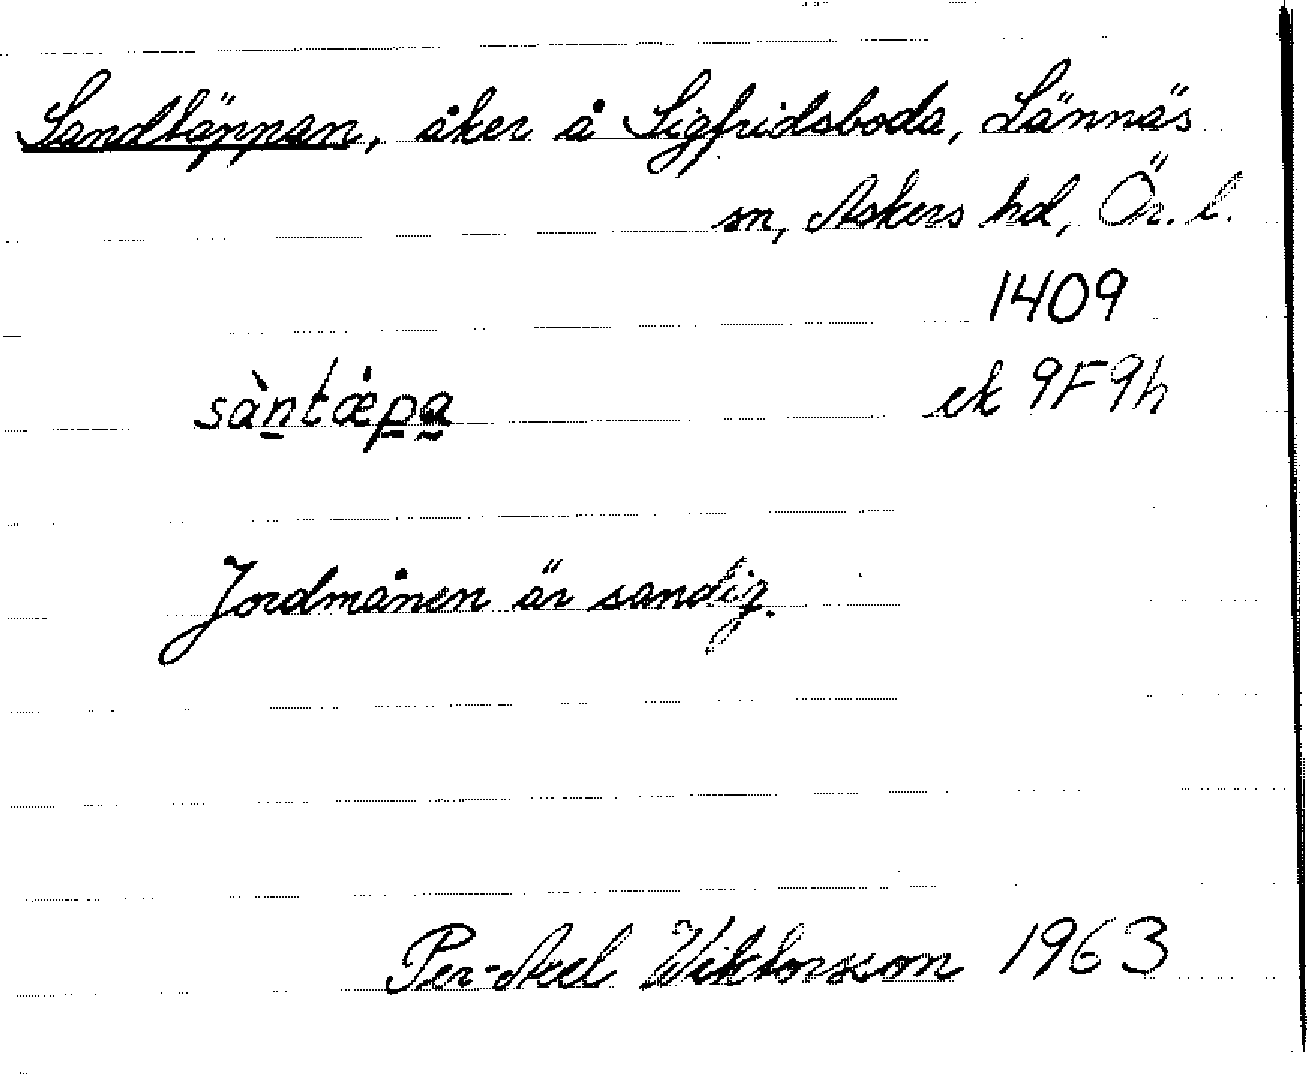 Sandtäppan, åker å Sigfridsboda, Lännäs
sn, Askers hd, Ör. l.
1409
sàntæ̀pa
ek 9F9h
Jordmånen är sandig.
Per-Axel Wiktorsson 1963